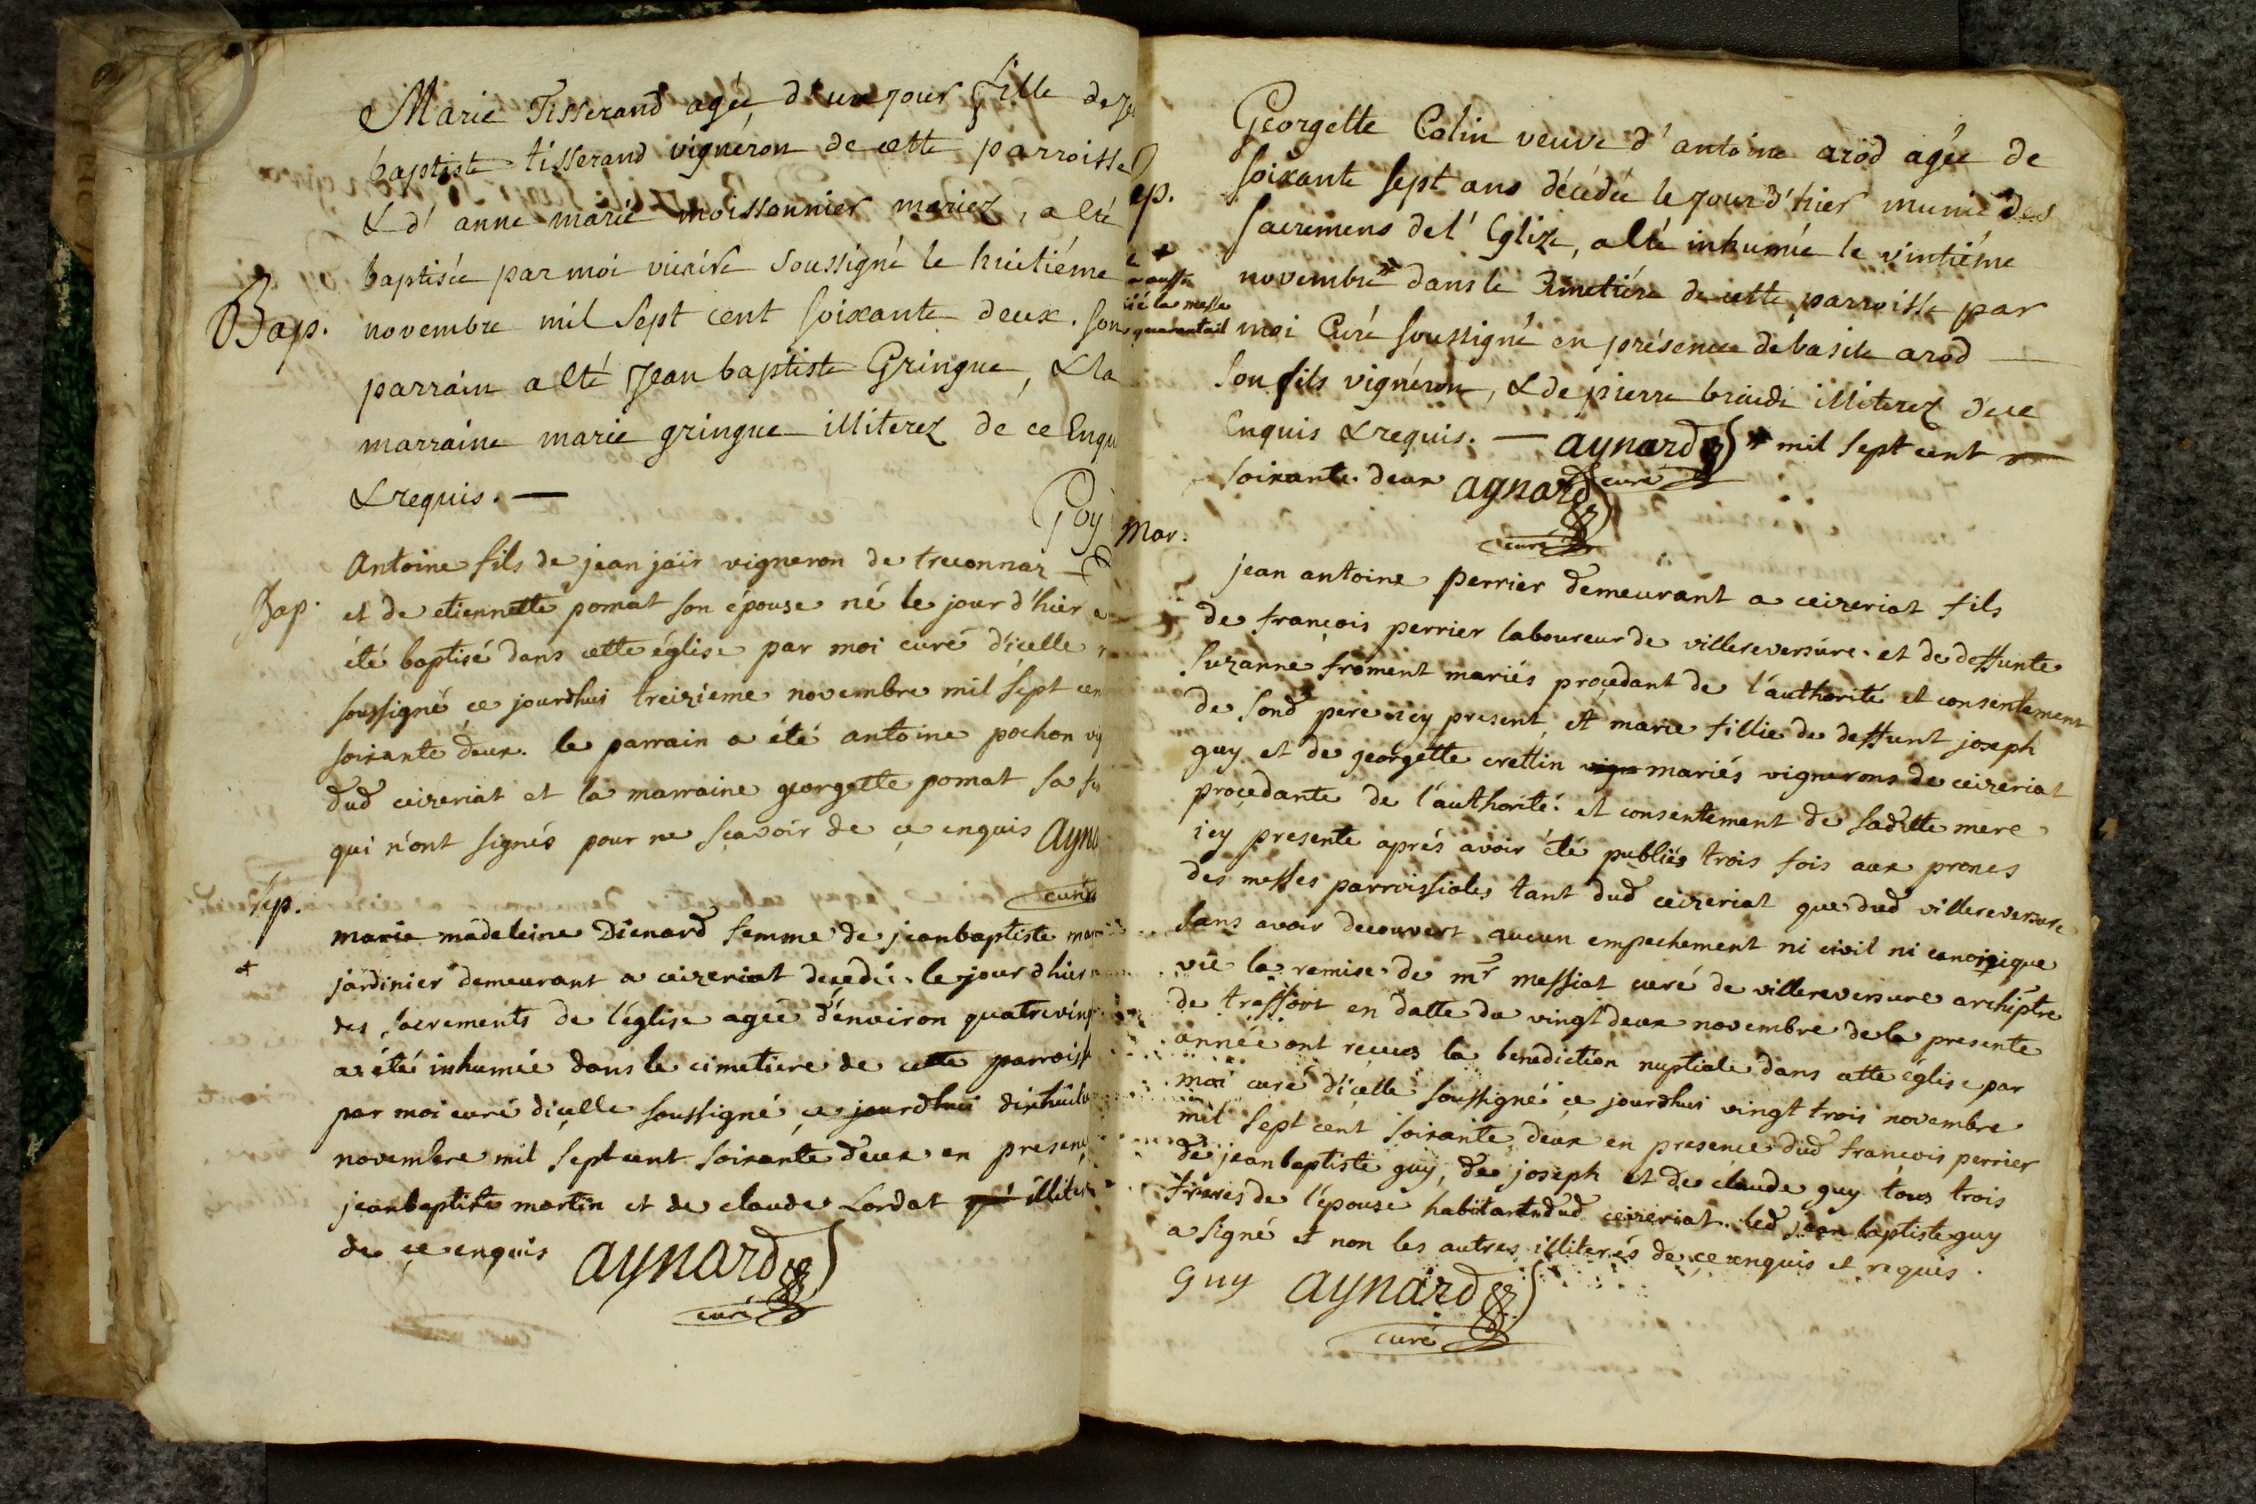 Marie Tisserand agée, d'un jour fille de
baptiste tisserand vignéron de cette parroisse
& d'anne marie moissonnier mariez, a été
baptisée par moi vicaire soussigné le huitiéme
Bap.
novembre mil sept cent soixante deux. son
parrain a été Jean baptiste Gringue, & la
marraine marie gringue illiterez de ce
& requis. —
Goy
Bap.
antoine fils de jean jair vigneron de treconnaz
et de etiennette pomat son épouse né le jour d'hier a
été baptisé dans cette église par moi curé d'icelle
soussigné ce jourdhui treizieme novembre mil sept
soixante deux. le parrain a été antoine pochon
dud ceizeriat et la marraine georgette pomat sa
qui n'ont signés pour ne sçavoir de ce enquis
curé
sep.
marie madeleine Dienard femme de jeanbaptiste
jardinier demeurant a ceizeriat decedée le jour dhier
des sacrements de l'église agée d'environ
a été inhumée dans le cimetiere de cette
par moi curé d'icelle soussigné ce jourdhui
novembre mil sept cent soixante deux en
jeanbaptiste martin et de claude Lordat qui
de ce enquis aynard
curé
Georgette Colin veuve d'antoine arod agée de
soixante sept ans décédée le jour d'hier munie des
sacremens de l'Eglize, a été inhumée le vintiéme
la messe
novembre * dans le Cimetiére de cette parroisse par
moi Curé soussigné en présence de basile arod —
son fils vignéron, & de pierre briudi illiterez de ce
Enquis & requis. — aynard * mil sept cent
curé
soixante deux aynard
curé
Mar.
jean antoine perrier demeurant a ceizeriat fils
de françois perrier laboureur de villereversure et de deffunte
suzanne froment mariés proçedant de l'authorité et consentement
de sond pere icy present, et marie fillie de deffunt joseph
guy et de georgette crettin vign mariés vignerons de ceizeriat
proçedante de l'authorité et consentement de saditte mere
icy presente aprés avoir été publiés trois fois aux prones
des messes parroissiales tant dud ceizeriat que dud villereversure
sans avoir decouvert aucun empechement ni civil ni canonique
vüe la remise de mr messiat curé de villereversure archiptre
de treffort en datte du vingt deux novembre de la presente
année ont recues la benediction nuptiale dans cette église par
moi curé d'icelle soussigné ce jourdhui vingt trois novembre
mil sept cent soixante deux en presence dud francois perrier
de jeanbaptiste guy, de joseph et de claude guy tous trois
freres de l'épouse habitants dud ceizeriat. led jean baptiste guy
a signé et non les autres illiterés de ce enquis et requis.
guy aynard
curé